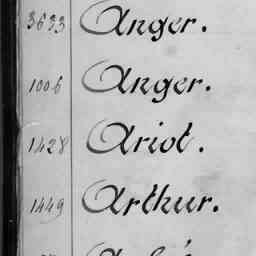 3633 Anger.
1006 Anger.
1428 Ariot.
1449 Arthur.